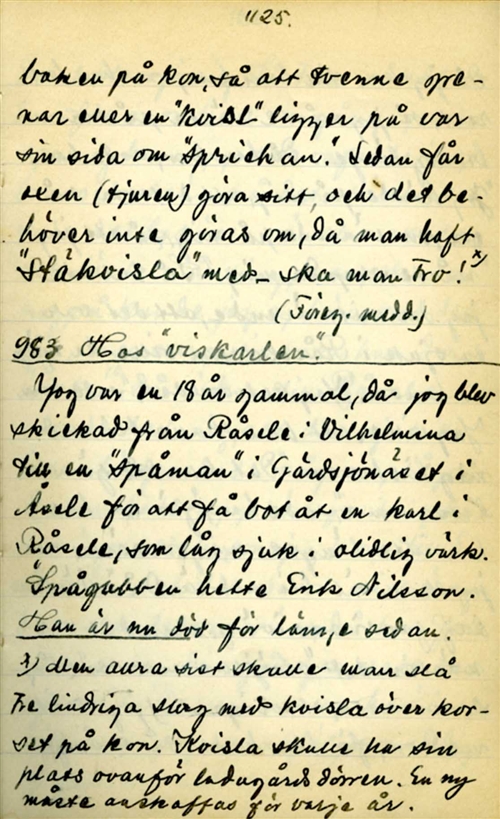 1125.
baken på kon, så att tvenne gre-
nar eller en "kvist" ligger på var
sin sida om "sprickan." Sedan får
oxen (tjuren) göra sitt, och det be-
höver inte göras om, då man haft
"Ståkvisla" med - ska man tro! x)
(Föreg. medd.)
983 Hos "viskarlen".
Jag var en 18 år gammal, då jag blev
skickad från Råsele i Vilhelmina
till en "spåman" i Gärdsjönäset i
Åsele för att få bot åt en karl i
Råsele, som låg sjuk i olidlig värk.
"Spågubben hette Erik Nilsson.
Han är nu död för länge sedan.
x) Allra sist skulle man slå
tre lindriga slag med kvisla över kor-
set på kon. Kvisla skulle ha sin
plats ovanför ladugårdsdörren. En ny
måste anskaffas för varje år.